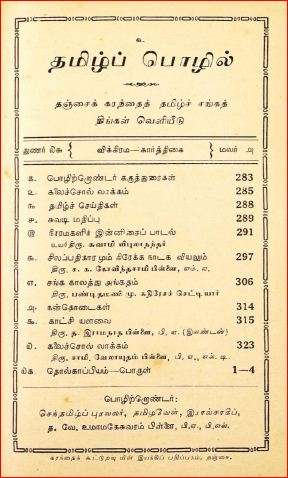 உ
தமிழ்ப் பொழில்
தஞ்சைக் கரந்தைத் தமிழ்ச் சங்கத்
திங்கள் வெளியீடு
துணர் ௧௬ விக்கிரம—கார்த்திகை மலர் ௮
௧. பொழிற்றொண்டர் கருத்துரைகள் 283
௨. கலைச்சொல் லாக்கம் 285
௩. தமிழ்ச் செய்திகள் 288
௪. சுவடி மதிப்பு 289
௫. நீரரமகளிர் இன்னிசைப் பாடல் 291
உயர்திரு. சுவாமி விபுலாநந்தர்
௬. சிலப்பதிகாரமும் கிரேக்க நாடக வியலும் 297
திரு. ச. க. கோவிந்தசாமி பிள்ளை, எம். ஏ.
௭. சங்க காலத்து அங்கதம் 306
திரு. பண்டிதமணி மு. கதிரேசச் செட்டியார்
௮. கன்தொடைகள் 314
௯. காட்சி யளவை 315
திரு. த. இராமநாத பிள்ளை, பி. ஏ. (இலண்டன்)
௰. கலைச்சொல் லாக்கம் 323
திரு. சாமி. வேலாயுதம் பிள்ளை, பி. ஏ., எல். டி.
௰௧ தொல்காப்பியம்—பொருள் 1—4
பொழிற்றொண்டர்:
செந்தமிழ்ப் புரவலர், தமிழவேள், இராவ்சாகிப்,
த. வே. உமாமகேசுவரம் பிள்ளை, பி.ஏ., பி.எல்.
கரந்தைக் கூட்டுறவு மின் இயக்கப் பதிப்பகம், தஞ்சை.